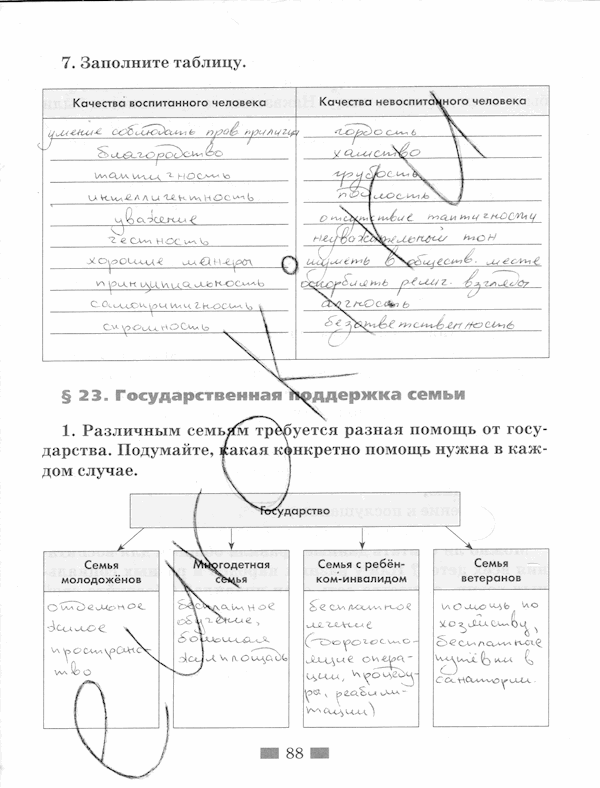 7. Заполните таблицу.
Качества воспитанного человека
Качества невоспитанного человека
умение соблюдать прав приличия
гордость
благородство
хамство
тактичность
грубость
интеллигентность
подлость
уважение
отсутствие тактичности
честность
неуважительный тон
хорошие манеры
шуметь в обществ. месте
принципиальность
оскорблять религ. взгляды
самокритичность
алчность
скромность
безответственность
§ 23. Государственная поддержка семьи
1. Различным семьям требуется разная помощь от госу-
дарства. Подумайте, какая конкретно помощь нужна в каж-
дом случае.
Государство
Семья
молодожёнов
Многодетная
семья
Семья с ребён-
ком-инвалидом
Семья
ветеранов
отдельное
жилое
пространс-
тво
бесплатное
обучение,
большая
жилплощадь
бесплатное
лечение
(дорогосто-
ящие опера-
ции, процеду-
ры, реабили-
тации)
помощь по
хозяйству,
бесплатные
путёвки в
санатории.
88